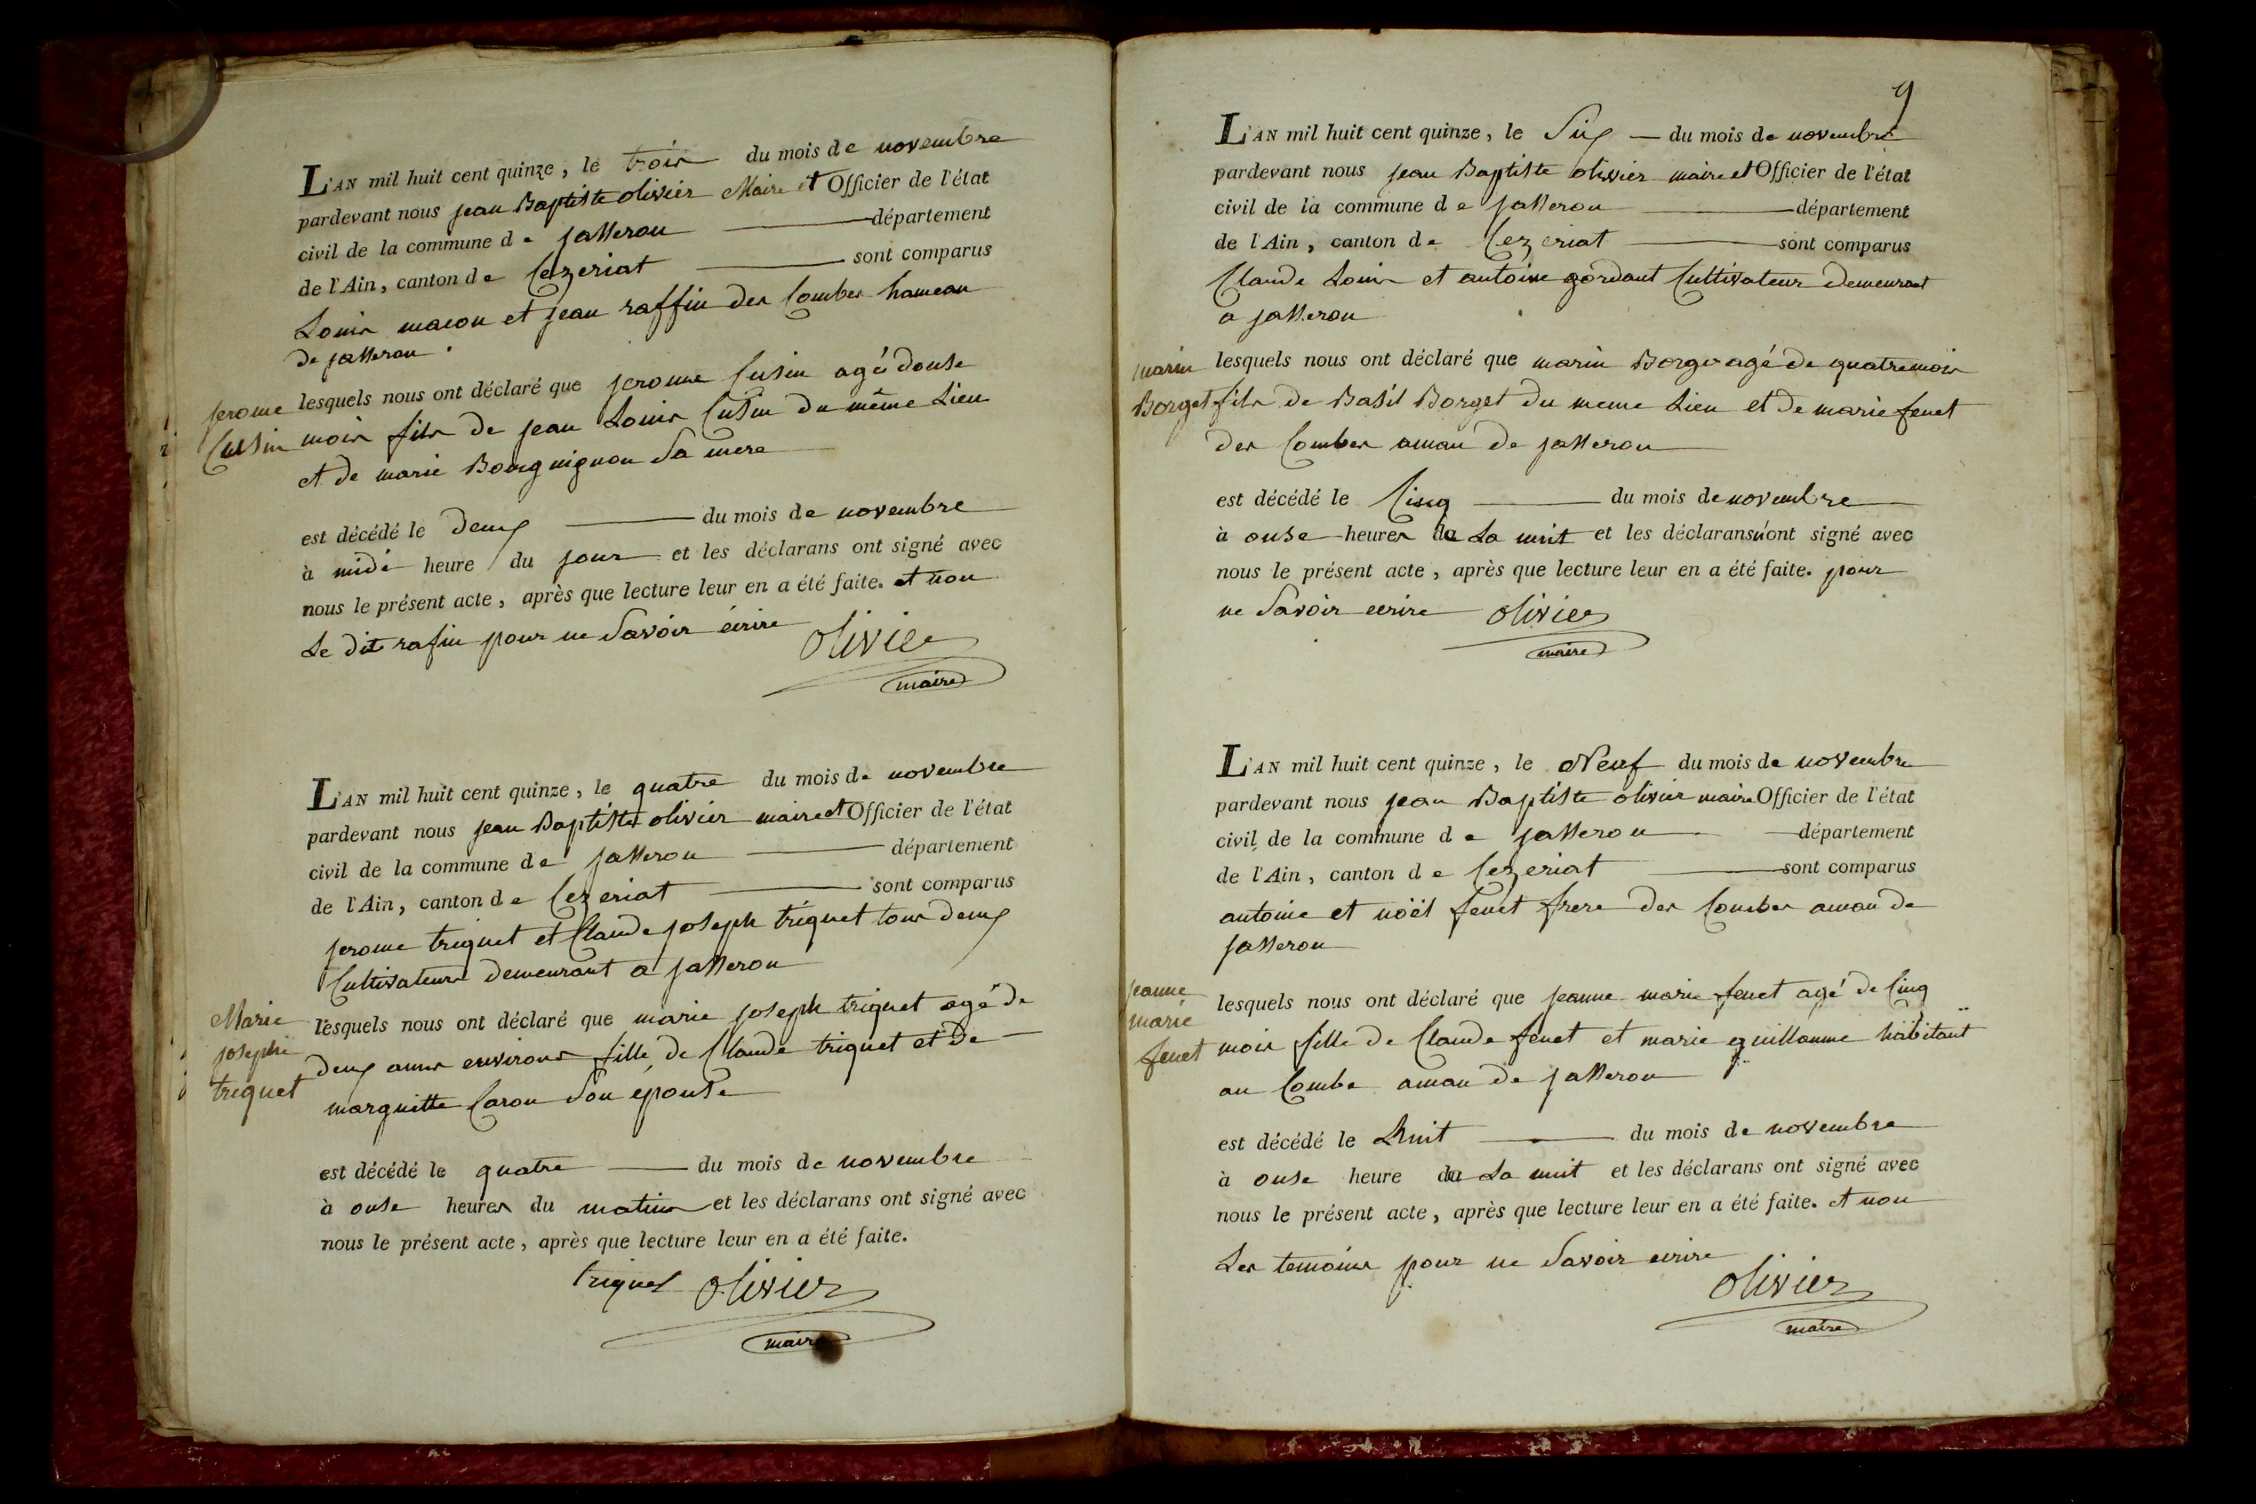 L'AN mil huit cent quinze, le trois du mois de novembre
pardevant nous jean Baptiste olivier Maire et Officier de l'état
civil de la commune de jasseron département
de l'Ain, canton de Cezeriat sont comparus
Louis macon et jean raffin des Combes hameau
de jasseron.
jerome Cusin
lesquels nous ont déclaré que jerome Cusin agé douse
mois fils de jean Louis Cusin du même Lieu
et de marie Bourguignon Sa mere
est décédé le deux du mois de novembre
à midi heure du jour et les déclarans ont signé avec
nous le présent acte, après que lecture leur en a été faite. et non
Le dit rafin pour ne Savoir écrire
olivier
maire
L'AN mil huit cent quinze, le quatre du mois de novembre
pardevant nous jean Baptiste olivier maire et Officier de l'état
civil de la commune de jasseron département
de l'Ain, canton de Cezeriat sont comparus
jerome triquet et Claude joseph triquet tous deux
Cultivateurs demeurant a jasseron
Marie
josephe
triquet
lesquels nous ont déclaré que marie joseph triquet agé de
deux anns environs fille de Claude triquet et de
marguitte Caron Son épouse
est décédé le quatre du mois de novembre
à onse heures du matin et les déclarans ont signé avec
nous le présent acte, après que lecture leur en a été faite.
triquet olivier
maire
9
L'AN mil huit cent quinze, le Six du mois de novembre
pardevant nous jean Baptiste olivier maire et Officier de l'état
civil de la commune de jasseron département
de l'Ain, canton de Cezeriat sont comparus
Claude Louis et antoine gordant Cultivateur demeurant
a jasseron
marin
Borget
lesquels nous ont déclaré que marin Borget agé de quatre mois
fils de Basil Borget du meme Lieu et de marie fenet
des Combes aman de jasseron
est décédé le Cinq du mois de novembre
à onse heures de La nuit et les déclarans n'ont signé avec
nous le présent acte, après que lecture leur en a été faite. pour
ne Savoir ecrire olivier
maire
L'AN mil huit cent quinze, le Neuf du mois de novembre
pardevant nous jean Baptiste olivier maire Officier de l'état
civil de la commune de jasseron département
de l'Ain, canton de Cezeriat sont comparus
antoine et noël fenet frere des Combes aman de
jasseron
jeanne
marie
fenet
lesquels nous ont déclaré que jeanne marie fenet agé de Cinq
mois fille de Claude fenet et marie guillaume habitant
au Combe aman de jasseron
est décédé le huit du mois de novembre
à onse heure de La nuit et les déclarans ont signé avec
nous le présent acte, après que lecture leur en a été faite. et non
Les temoins pour ne Savoir ecrire
olivier
maire